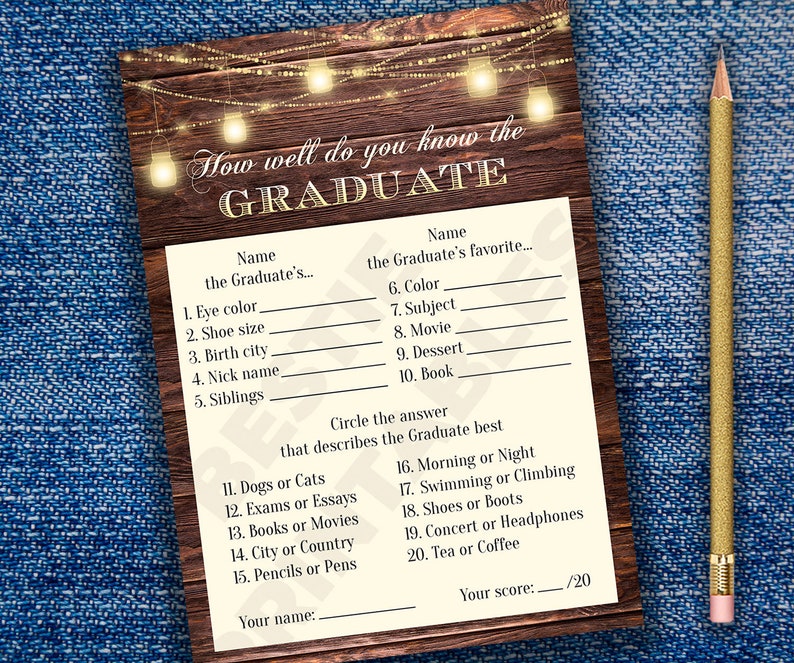 How well do you know the
GRADUATE
Name
the Graduate's...
1. Eye color
2. Shoe size
3. Birth city
4. Nick name
5. Siblings
Name
the Graduate's favorite...
6. Color
7. Subject
8. Movie
9. Dessert
10. Book
Circle the answer
that describes the Graduate best
11. Dogs or Cats
12. Exams or Essays
13. Books or Movies
14. City or Country
15. Pencils or Pens
16. Morning or Night
17. Swimming or Climbing
18. Shoes or Boots
19. Concert or Headphones
20. Tea or Coffee
Your name:
Your score: /20
BESTIE
PRINTABLES